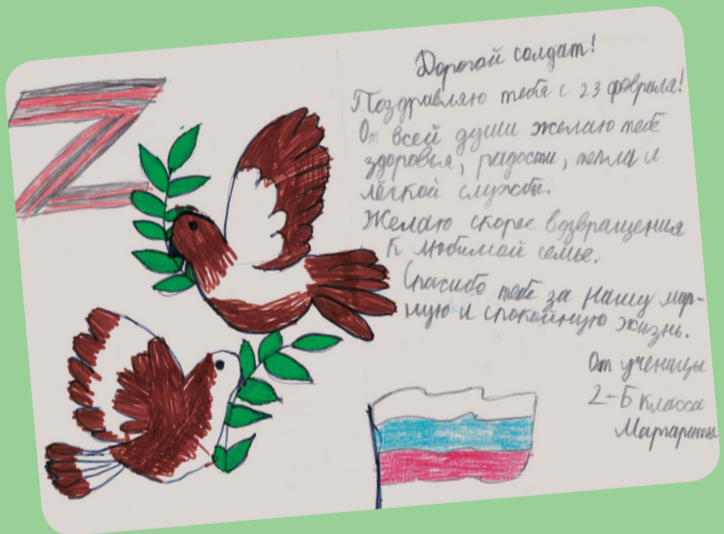 Z
Дорогой солдат!
Поздравляю тебя с 23 февраля!
От всей души желаю тебе
здоровья, радости, тепла и
лёгкой службы.
Желаю скорее возвращения
к любимой семье.
Спасибо тебе за нашу мир-
ную и спокойную жизнь.
От ученицы
2-Б класса
Маргариты